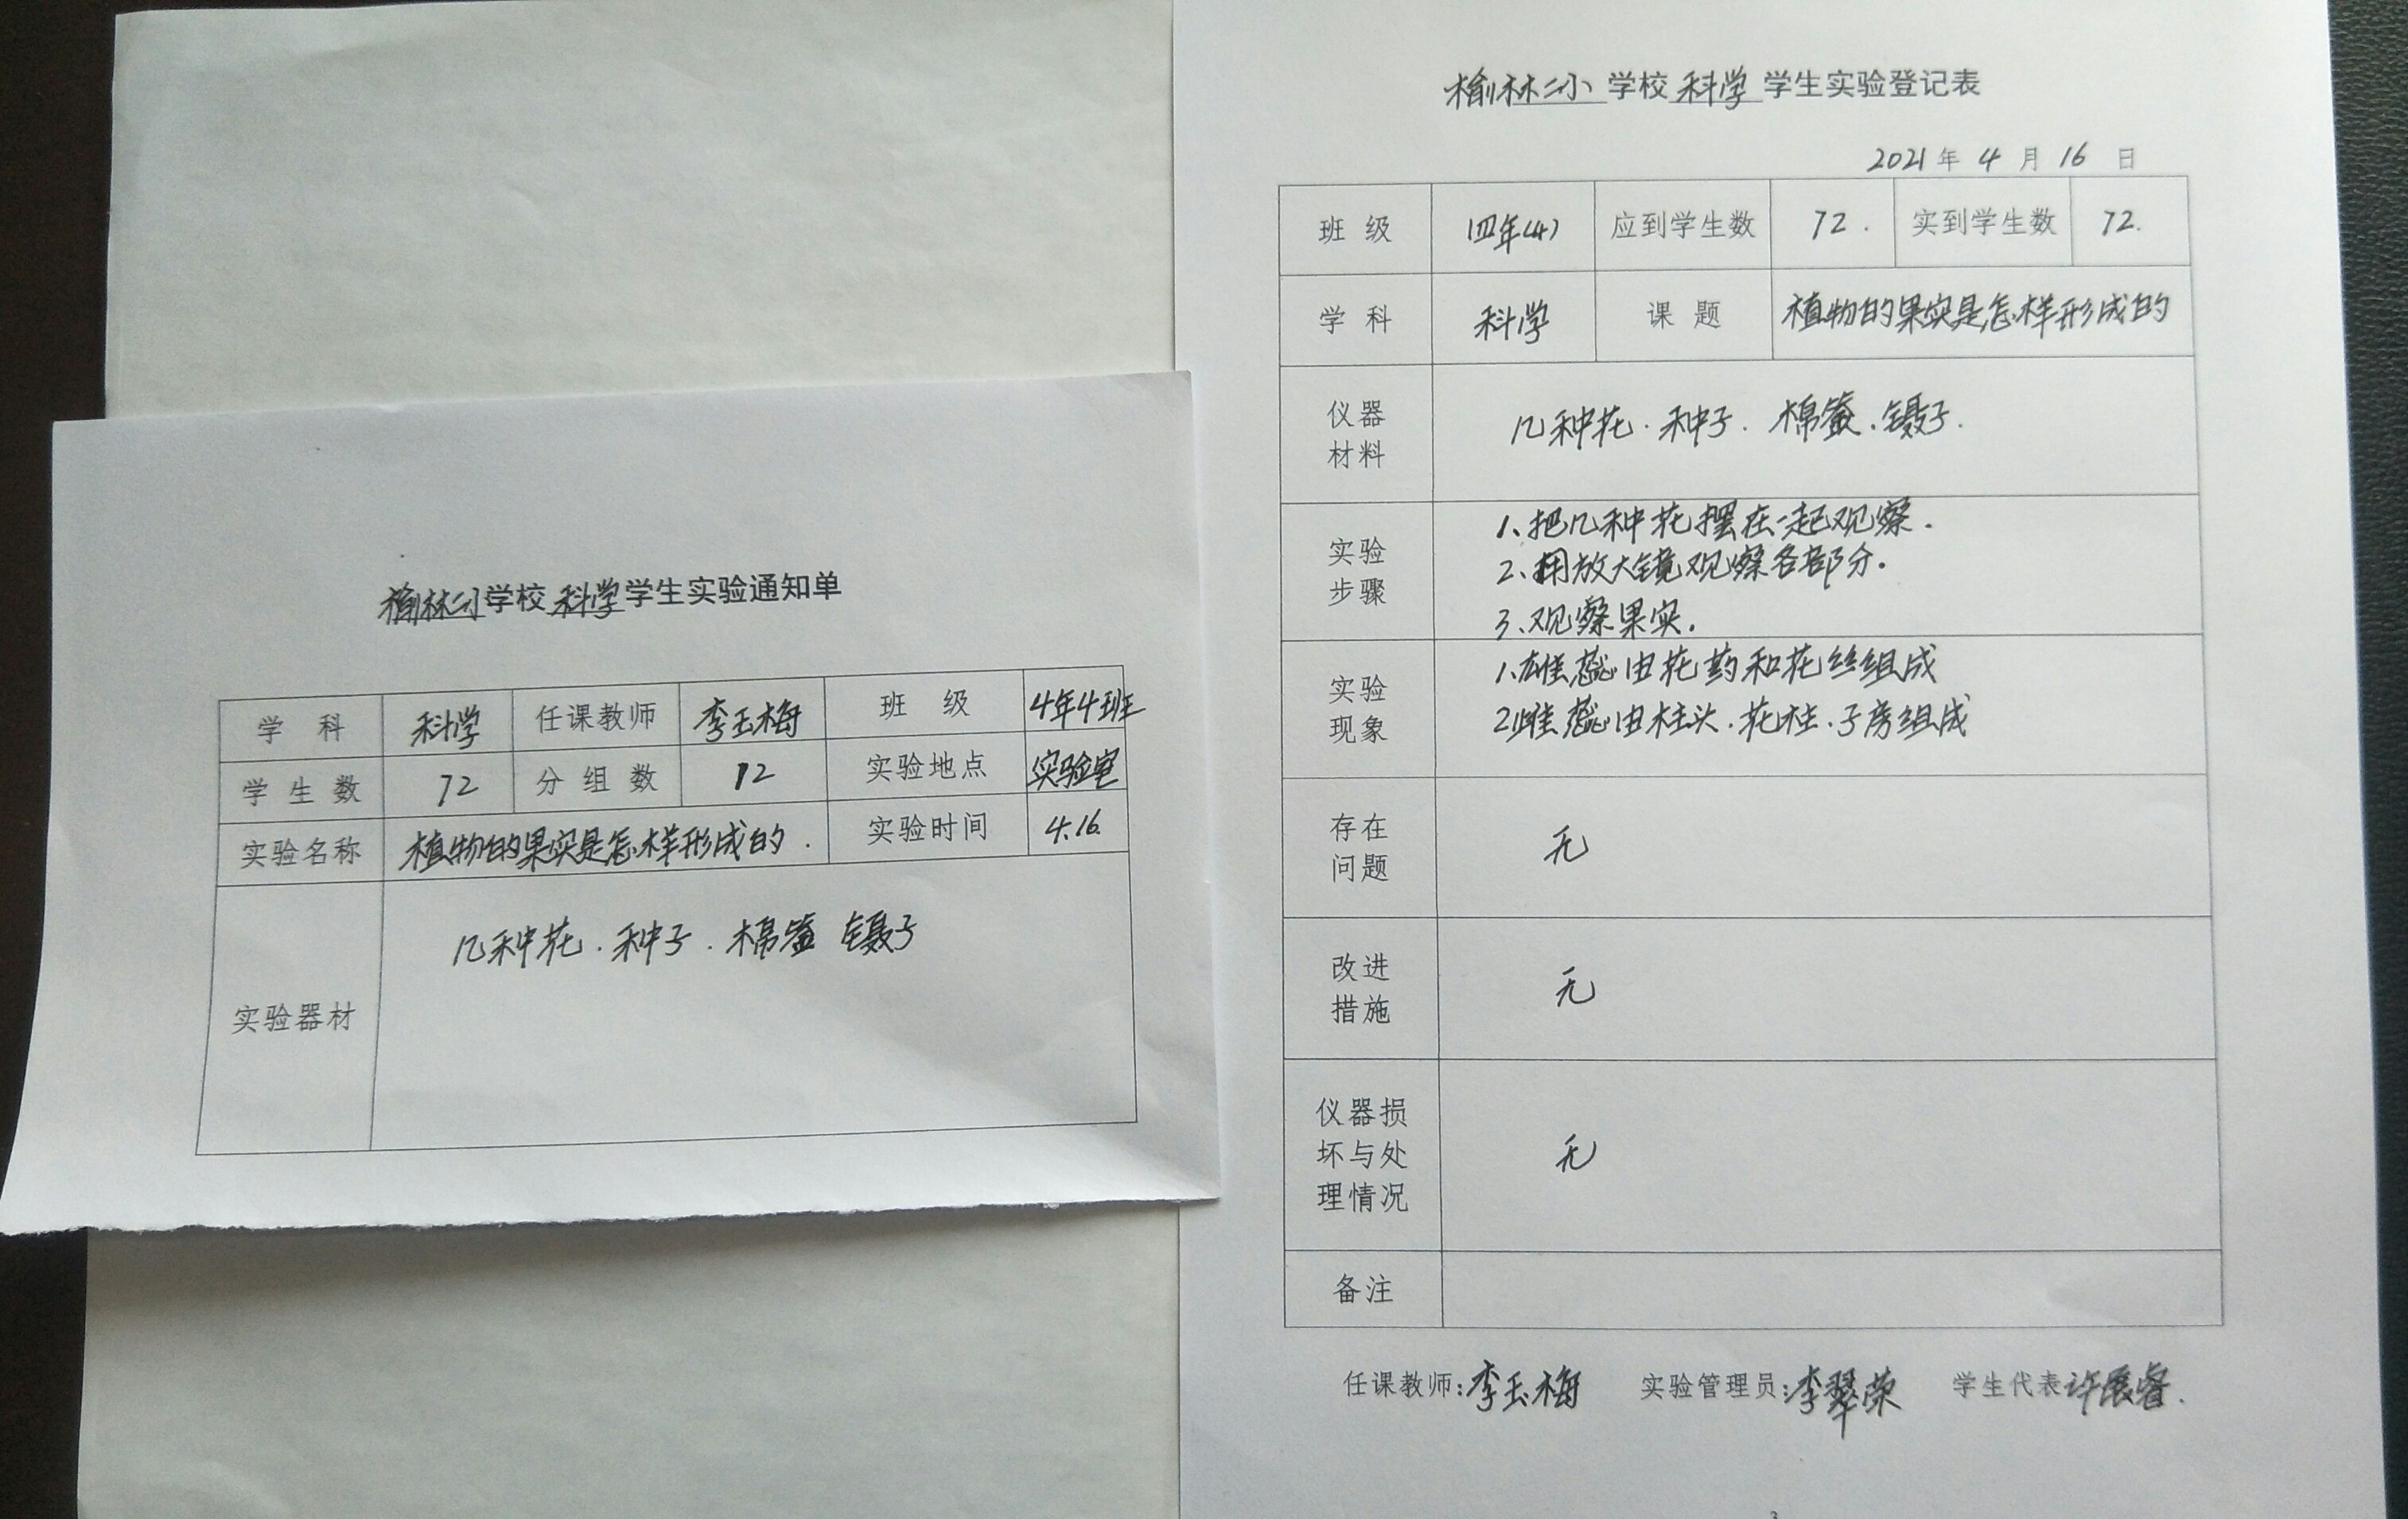 榆林二小学校科学学生实验通知单
学 科 科学 任课教师 李玉梅 班 级 4年4班
学 生 数 72 分 组 数 12 实验地点 实验室
实验名称 植物的果实是怎样形成的. 实验时间 4.16.
几种花.种子.棉签 镊子
实验器材
榆林二小学校科学学生实验登记表
2021年 4 月 16 日
班 级 四年(4) 应到学生数 72. 实到学生数 72.
学 科 科学 课 题 植物的果实是怎样形成的
仪器
材料
几种花.种子.棉签.镊子.
实验
步骤
1、把几种花摆在一起观察.
2、用放大镜观察各部分.
3、观察果实.
实验
现象
1.雄蕊由花药和花丝组成
2.雌蕊由柱头.花柱.子房组成
存在
问题
无
改进
措施
无
仪器损
坏与处
理情况
无
备注
任课教师:李玉梅 实验管理员:李翠荣 学生代表许展睿.
3